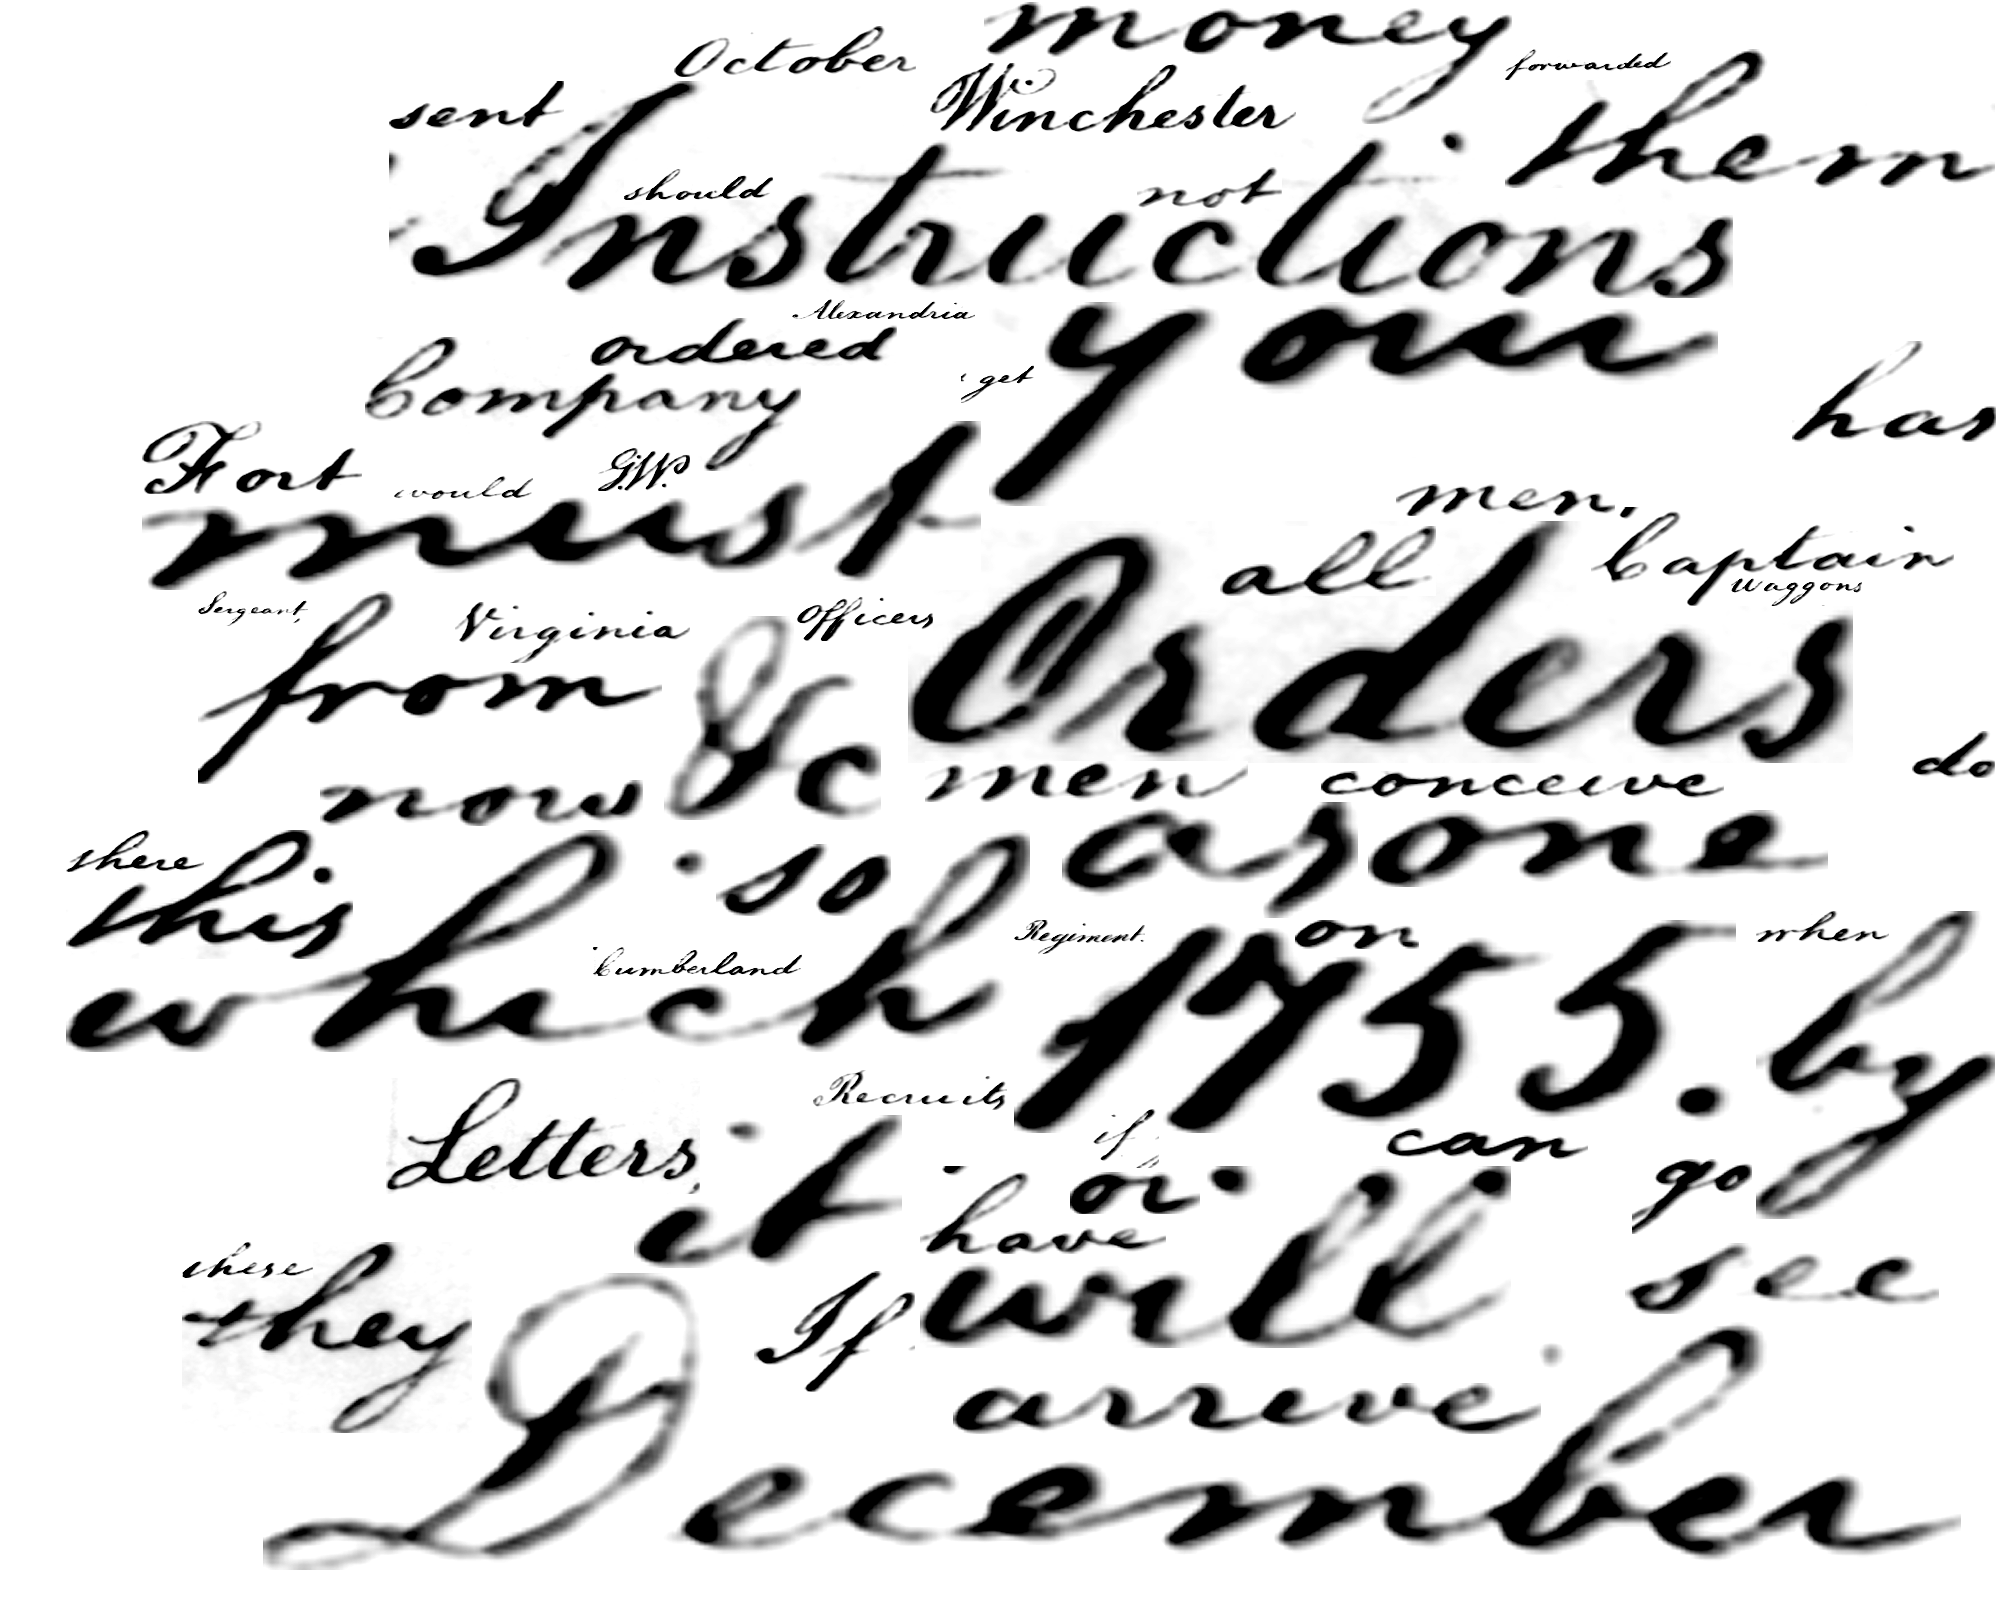 money
October forwarded
sent Winchester them
should not
Instructions
Alexandria
ordered your
Company get has
Fort would G.W. men.
must all Captain
Waggons
Sergeant, Virginia Officers
from &c Orders
now men conceive do
there as one
this so
which Cumberland Regiment. on 1755. when by
Letters, Recruits if can
it or go
these have see
they If will
arrive
December